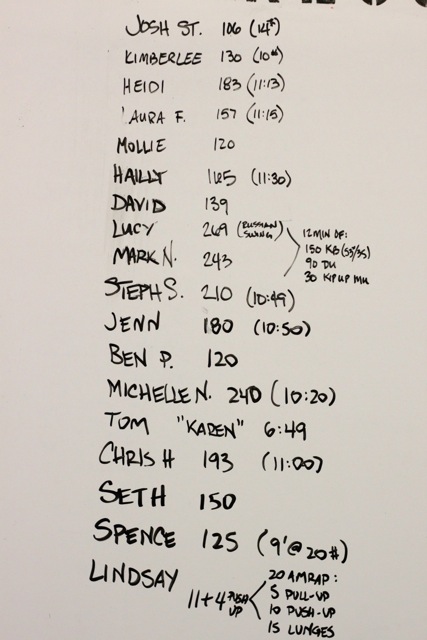 JOSH ST. 106 (14#)
KIMBERLEE 130 (10#)
HEIDI 183 (11:13)
LAURA F. 157 (11:15)
MOLLIE 120
HAILLY 165 (11:30)
DAVID 139
LUCY 269 (RUSSIAN SWING)
MARK N. 243
12 MIN OF:
150 KB (55/35)
90 DU
30 KIPUP MU
STEPH S. 210 (10:49)
JENN 180 (10:50)
BEN P. 120
MICHELLE N. 240 (10:20)
TOM "KAREN" 6:49
CHRIS H 193 (11:00)
SETH 150
SPENCE 125 (9'@20#)
LINDSAY 11+4 PUSH UP
20 AMRAP:
5 PULL-UP
10 PUSH-UP
15 LUNGES